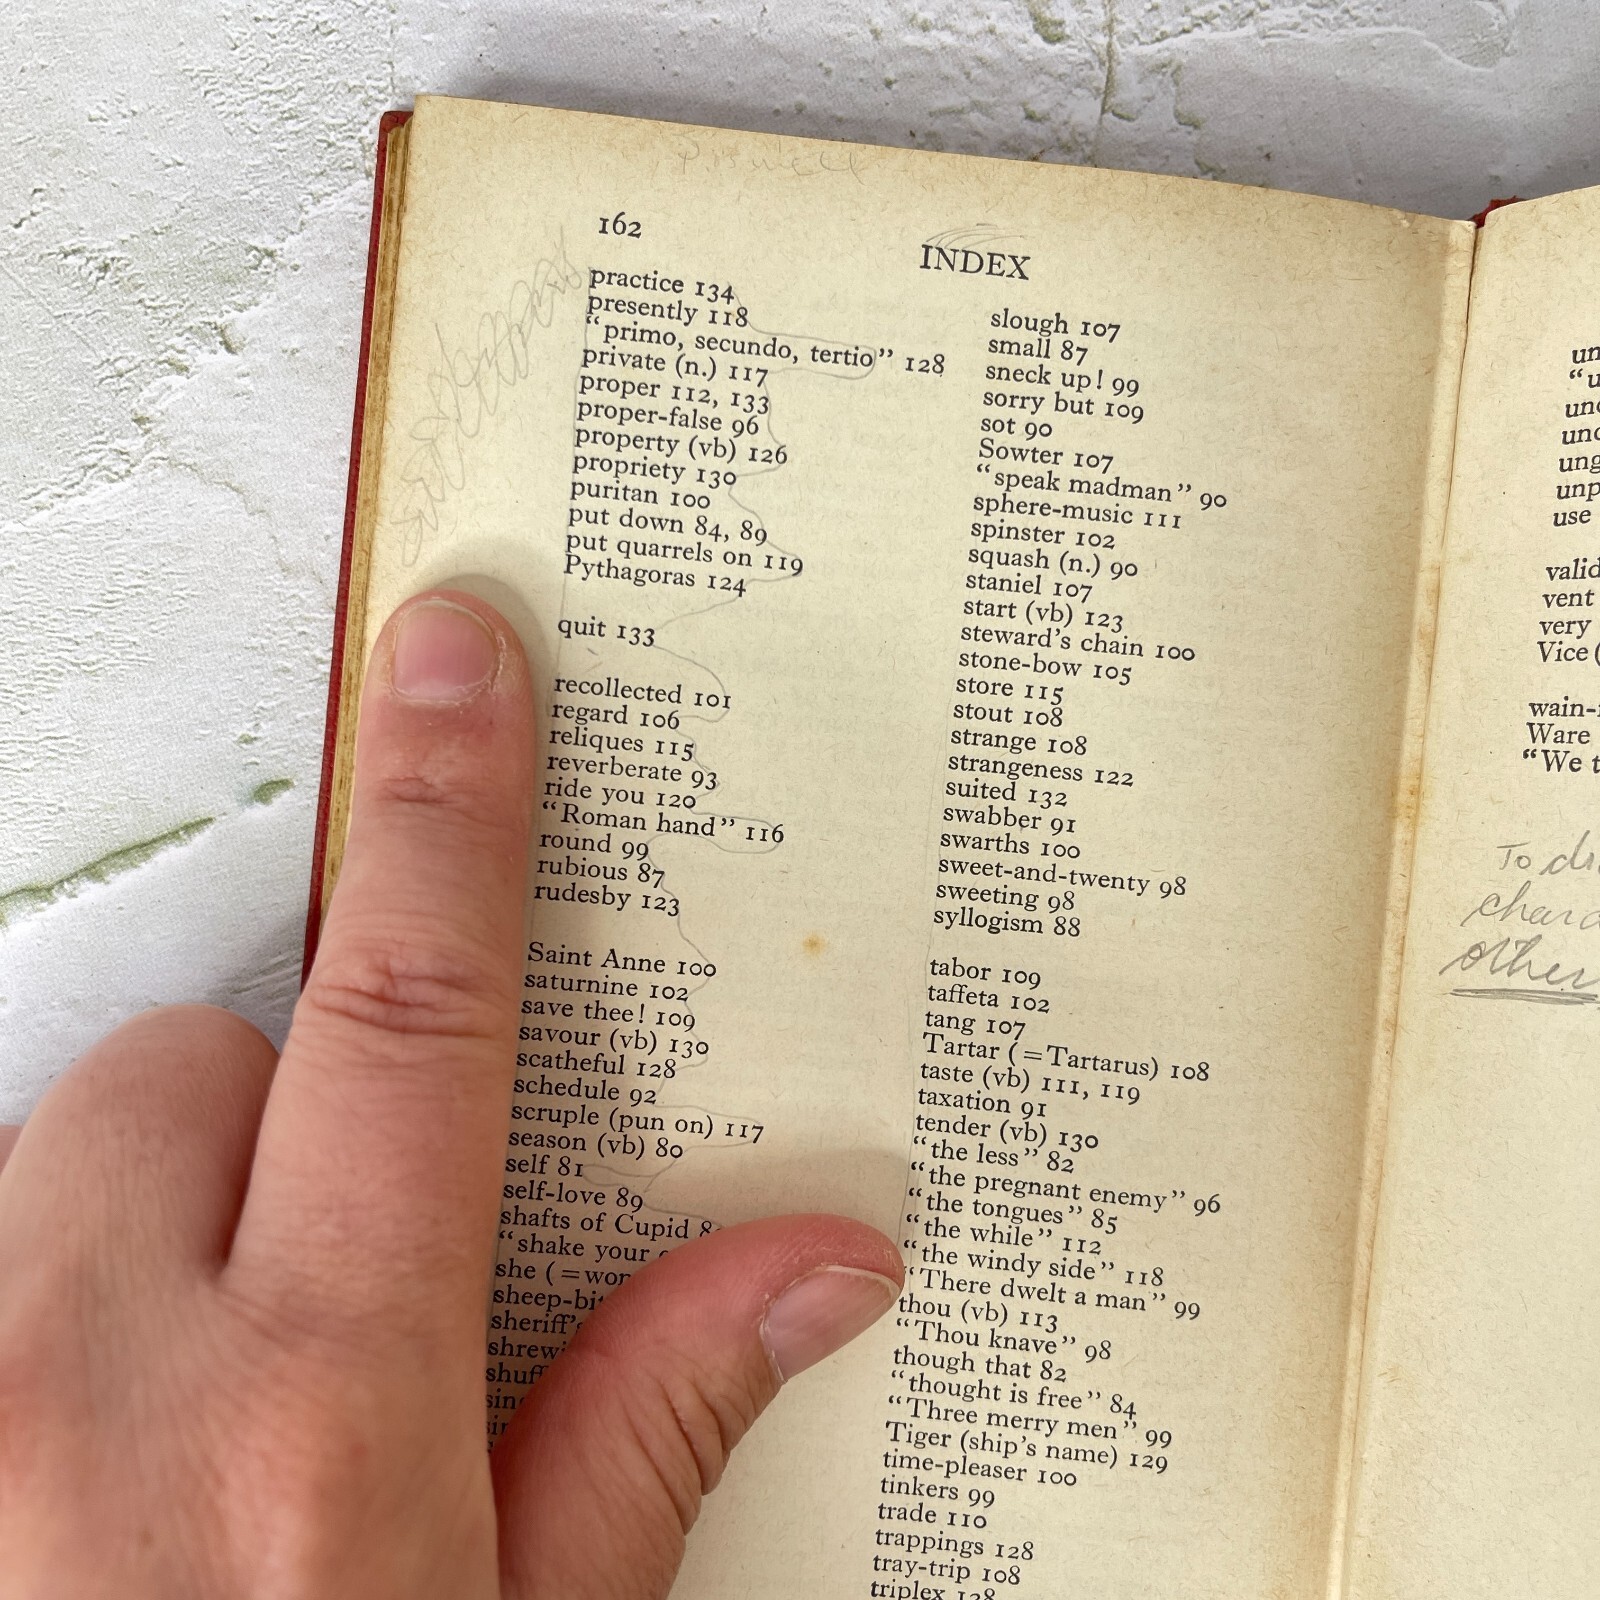 162
INDEX
practice 134
presently 118
“primo, secundo, tertio” 128
private (n.) 117
proper 112, 133
proper-false 96
property (vb) 126
propriety 130
puritan 100
put down 84, 89
put quarrels on 119
Pythagoras 124
quit 133
recollected 101
regard 106
reliques 115
reverberate 93
ride you 120
“Roman hand” 116
round 99
rubious 87
rudesby 123
Saint Anne 100
saturnine 102
save thee! 109
savour (vb) 130
scatheful 128
schedule 92
scruple (pun on) 117
season (vb) 80
self 81
self-love 89
shafts of Cupid
“shake your
she (=
slough 107
small 87
sneck up! 99
sorry but 109
sot 90
Sowter 107
“speak madman” 90
sphere-music 111
spinster 102
squash (n.) 90
staniel 107
start (vb) 123
steward's chain 100
stone-bow 105
store 115
stout 108
strange 108
strangeness 122
suited 132
swabber 91
swarths 100
sweet-and-twenty 98
sweeting 98
syllogism 88
tabor 109
taffeta 102
tang 107
Tartar (=Tartarus) 108
taste (vb) 111, 119
taxation 91
tender (vb) 130
“the less” 82
“the pregnant enemy” 96
“the tongues” 85
“the while” 112
“the windy side” 118
“There dwelt a man” 99
thou (vb) 113
“Thou knave” 98
though that 82
“thought is free” 84
“Three merry men” 99
Tiger (ship's name) 129
time-pleaser 100
tinkers 99
trade 110
trappings 128
tray-trip 108
triplex 128
valid
vent
very
Vice
Ware
“We
To
other